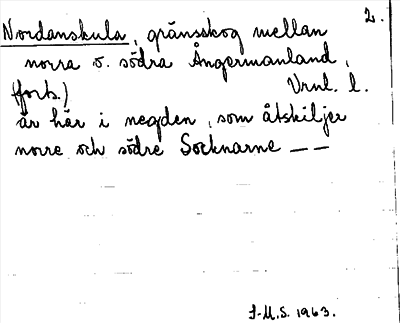 2.
Nordanskula, gränsskog mellan
norra o. södra Ångermanland,
(forts.) Vrnl. l.
är här i negden, som åtskiljer
norre och södre Socknarne — —
J-M.S. 1963.